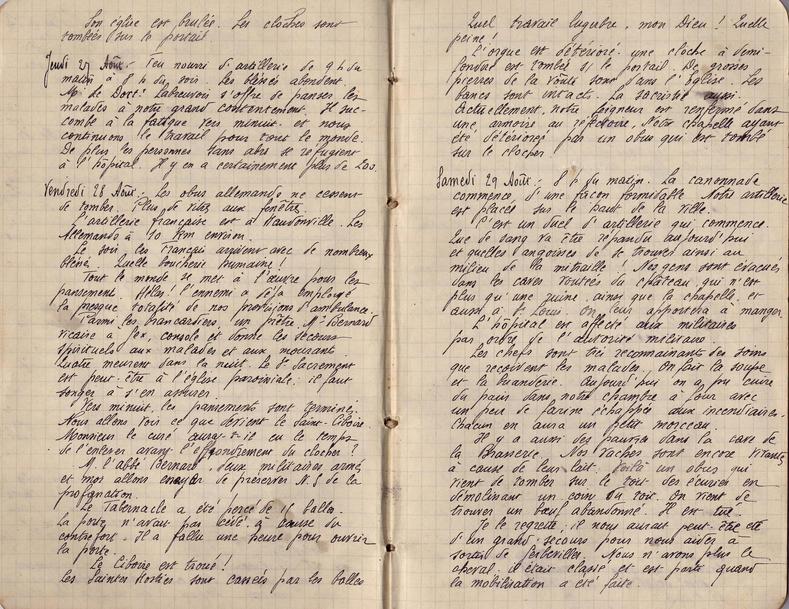 Son église est brulée. Les cloches sont
tombées sur le portail
Jeudi 27 Août. Feu nourri d'artillerie de 9 h du
matin à 8 h du soir. Les blessés abondent.
M. de Labauvoir s'offre de panser les
malades à notre grand contentement. Il suc-
combe à la fatigue vers minuit et nous
continuons le travail pour tout le monde.
De plus les personnes sans abri se réfugient
à l'hôpital. Il y en a certainement plus de 200.
Vendredi 28 Août. Les obus allemands ne cessent
de tomber. Plus de vitres aux fenêtres.
L'artillerie française est à Haudonville. Les
Allemands à 10 km environ.
Le soir, les Français arrivent avec de nombreux
blessés. Quelle boucherie humaine!
Tout le monde se met à l'œuvre pour les
pansements. Hélas! l'ennemi a déjà employé
la presque totalité de nos provisions d'ambulance.
Parmi les brancardiers, un prêtre, M. Bernard
vicaire à console et donne les secours
spirituels aux malades et aux mourants.
Quatre meurent dans la nuit. Le St Sacrement
est peut-être à l'église paroissiale; il faut
songer à s'en assurer.
Vers minuit, les pansements sont terminés.
Nous allons voir ce que devient le Saint-Ciboire.
Monsieur le curé aura-t-il eu le temps
de l'enlever avant l'effondrement du clocher?
M. l'abbé Bernard, deux militaires armés
et moi allons essayer de préserver N.S de la
profanation.
Le Tabernacle a été percé de 15 balles.
La porte n'avait pas cédé à cause du
contrefort. Il a fallu une heure pour ouvrir
la porte.
Le Ciboire est troué!
Les Saintes Hosties sont cassées par les balles
Quel travail lugubre, mon Dieu! Quelle
peine!
L'orgue est détérioré, une cloche à demi-
fondue est tombée sur le portail. De grosses
pierres de la voûte sont dans l'Eglise. Les
bancs sont intacts. La sacristie aussi.
Actuellement, notre Seigneur est renfermé dans
une armoire au réfectoire. Notre chapelle ayant
été détériorée par un obus qui est tombé
sur le clocher
Samedi 29 Août. 8 h du matin. La canonnade
commence d'une façon formidable. Notre artillerie
est placée sur le haut de la ville.
C'est un duel d'artillerie qui commence.
Que de sang va être répandu aujourd'hui
et quelles angoisses de se trouver ainsi au
milieu de la mitraille! Nos gens sont évacués
dans les caves voûtées du château, qui n'est
plus qu'une ruine, ainsi que la chapelle, et
aussi à St Louis. On leur apportera à manger.
L'hôpital est affecté aux militaires
par ordre de l'autorité militaire.
Les chefs sont très reconnaissants des soins
que reçoivent les malades. On fait la soupe
et la buanderie. Aujourd'hui on a pu cuire
du pain dans notre chambre à four avec
un peu de farine échappée aux incendiaires.
Chacun en aura un petit morceau.
Il y a aussi des pauvres dans la cave de
la Brasserie. Nos vaches sont encore vivantes
à cause de leur lait. Voilà un obus qui
vient de tomber sur le toit des écuries en
démolinant un coin du toit. On vient de
trouver un bœuf abandonné. Il est tué.
Je le regrette; il nous aurait peut-être été
d'un grand secours pour nous aider à
sortir de Gerbeviller. Nous n'avons plus le
cheval; il était classé et est parti quand
la mobilisation a été faite.